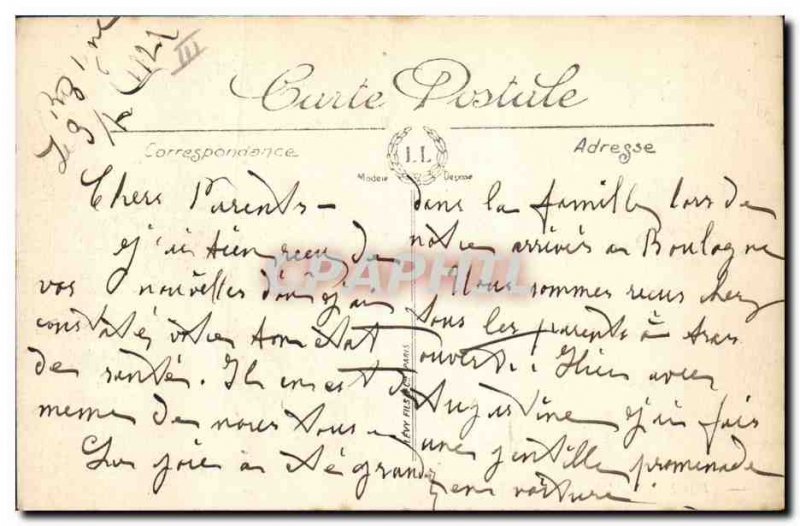 Carte Postale
Correspondance
LL
Adresse
Modèle Déposé
Chers Parents –
j'ai bien reçu de
vos nouvelles d'où j'ai
constaté votre bon état
de santé. Il en est de
meme de nous tous –
La joie a été grande
dans la famille lors de
notre arrivés a Boulogne
Nous sommes reçus chez
tous les parents à bras
ouverts. Hier avec
Augustine j'ai fais
une gentille promenade
en voiture
LEVY FILS & Cie PARIS
CPAPHIL
III